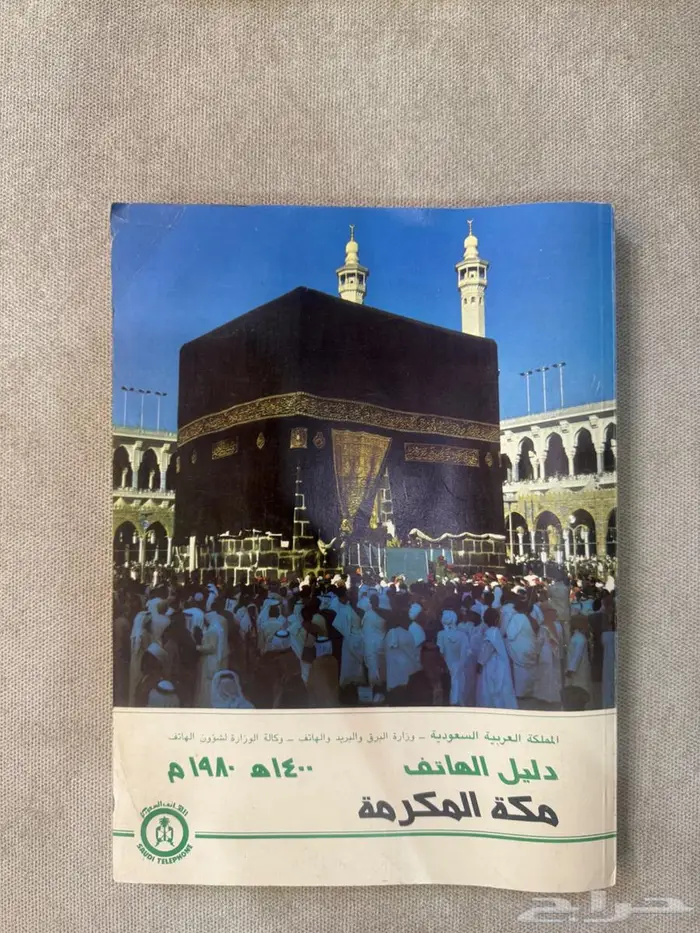 المملكة العربية السعودية - وزارة البرق والبريد والهاتف - وكالة الوزارة لشؤون الهاتف
دليل الهاتف ١٤٠٠هـ ١٩٨٠م
مكة المكرمة
الهاتف السعودي
SAUDI TELEPHONE
حراج